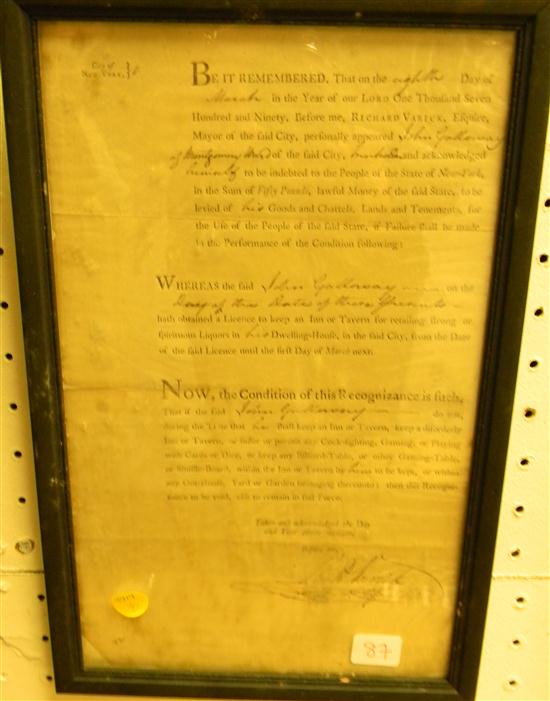 City of
New-York,
BE IT REMEMBERED, That on the eighth Day of
March in the Year of our LORD One Thousand Seven
Hundred and Ninety, Before me, RICHARD VARICK, Esquire,
Mayor of the said City, personally appeared John Galloway
of Montgomery Ward of the said City, and acknowledged
himself to be indebted to the People of the State of New-York,
in the Sum of Fifty Pounds, lawful Money of the said State, to be
levied of his Goods and Chattels, Lands and Tenements, for
the Use of the People of the said State, if Failure shall be made
in the Performance of the Condition following:
WHEREAS the said John Galloway on the
Day of the Date of these Presents
hath obtained a Licence to keep an Inn or Tavern for retailing strong or
spirituous Liquors in his Dwelling-House, in the said City, from the Date
of the said Licence until the first Day of March next.
NOW, the Condition of this Recognizance is such,
That if the said John Galloway do not,
during the Time that he shall keep an Inn or Tavern, keep a disorderly
Inn or Tavern, or suffer or permit any Cock-fighting, Gaming, or Playing
with Cards or Dice, or keep any Billiard-Table, or other Gaming-Table,
or Shuffle-Board, within the Inn or Tavern by him to be kept, or within
any Out-House, Yard or Garden belonging thereunto; then this Recogni-
zance to be void, else to remain in full Force.
Taken and acknowledged the Day
and Year above written,
Before me,
87